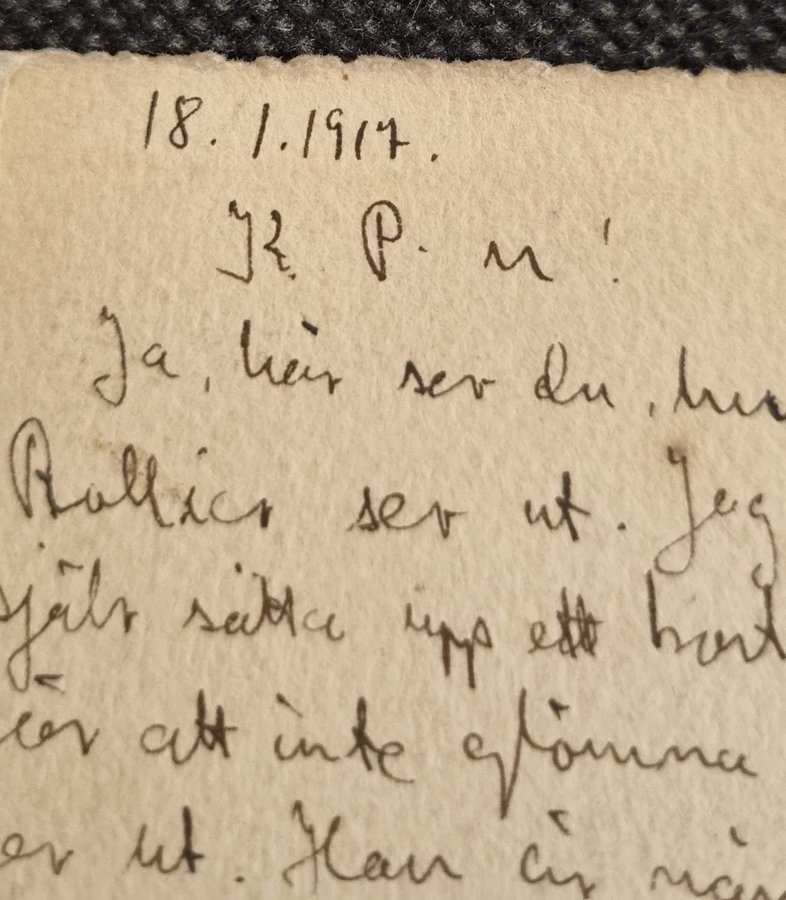 18. 1. 1917.
K. P. n!
Ja, här ser du, hur
Rollier ser ut. Jag
själv sätta upp ett kort
för att inte glömma
er ut. Han är